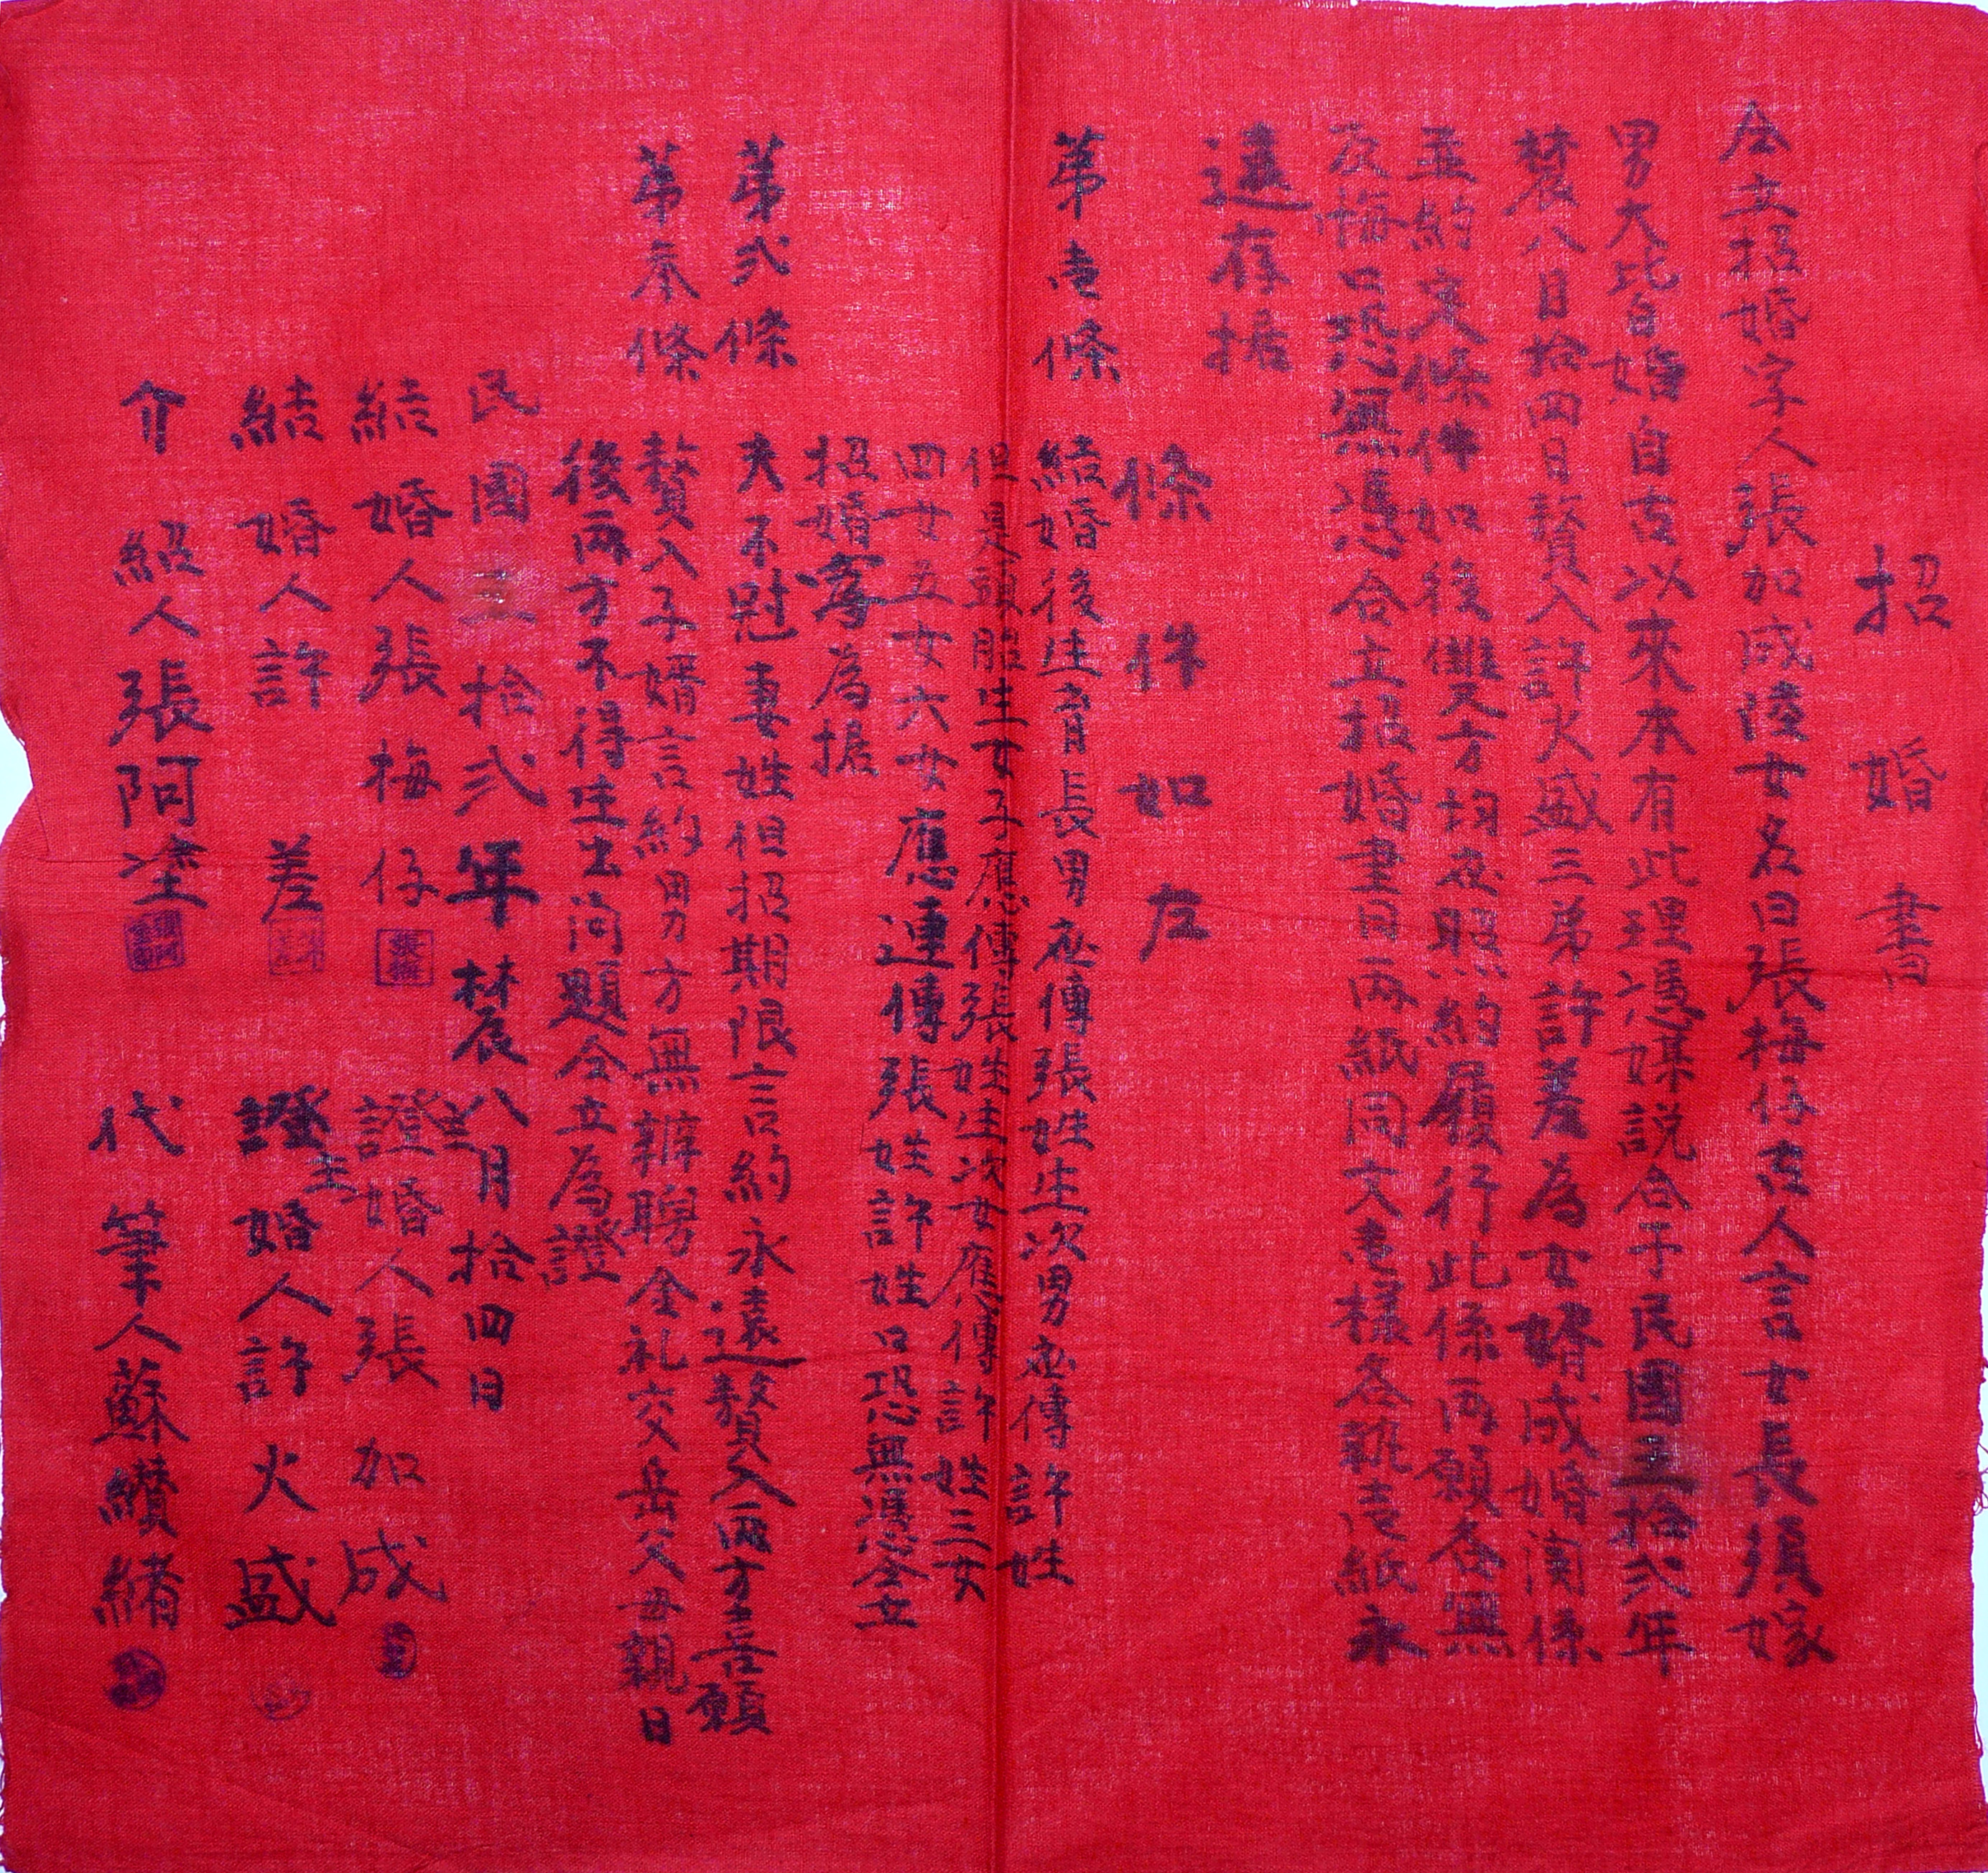 招婚書
仝立招婚字人張加成陸女名曰張梅仔古人言女長須嫁
男大皆婚自古以來本有此理憑媒説合于民國五拾弍年
八月拾四日贅入許火盛三弟許差為女婿成婚関係
立約定條件如後雙方均应照約履行此係両願各無
反悔口恐無憑合立招婚書月両紙同文壱樣各執壱紙永
遠存據
條件如左
第壱條 結婚後生育長男应傳張姓生次男应傳許姓
但是頭胎生女子應傳張姓生次女應傳許姓三女
四女五女六女應連傳張姓許姓口恐無憑仝立
招婚字為據
第弍條 夫不冠妻姓但招期限言約永遠贅入両方喜願
第叁條 贅入子婿言約男方無辦聘金礼交岳父母親日
後両方不得生出問題仝立為證
民國五拾弍年八月拾四日
結婚人張梅仔 證婚人張加成 主
結婚人許差 證婚人許火盛 主
介紹人張阿塗 代筆人蘇纘緒